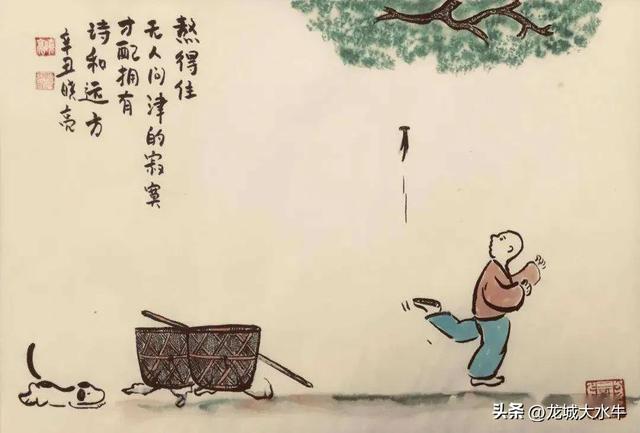 熬得住
无人问津的寂寞
才配拥有
诗和远方
辛丑晓亮
头条 @龙城大水牛